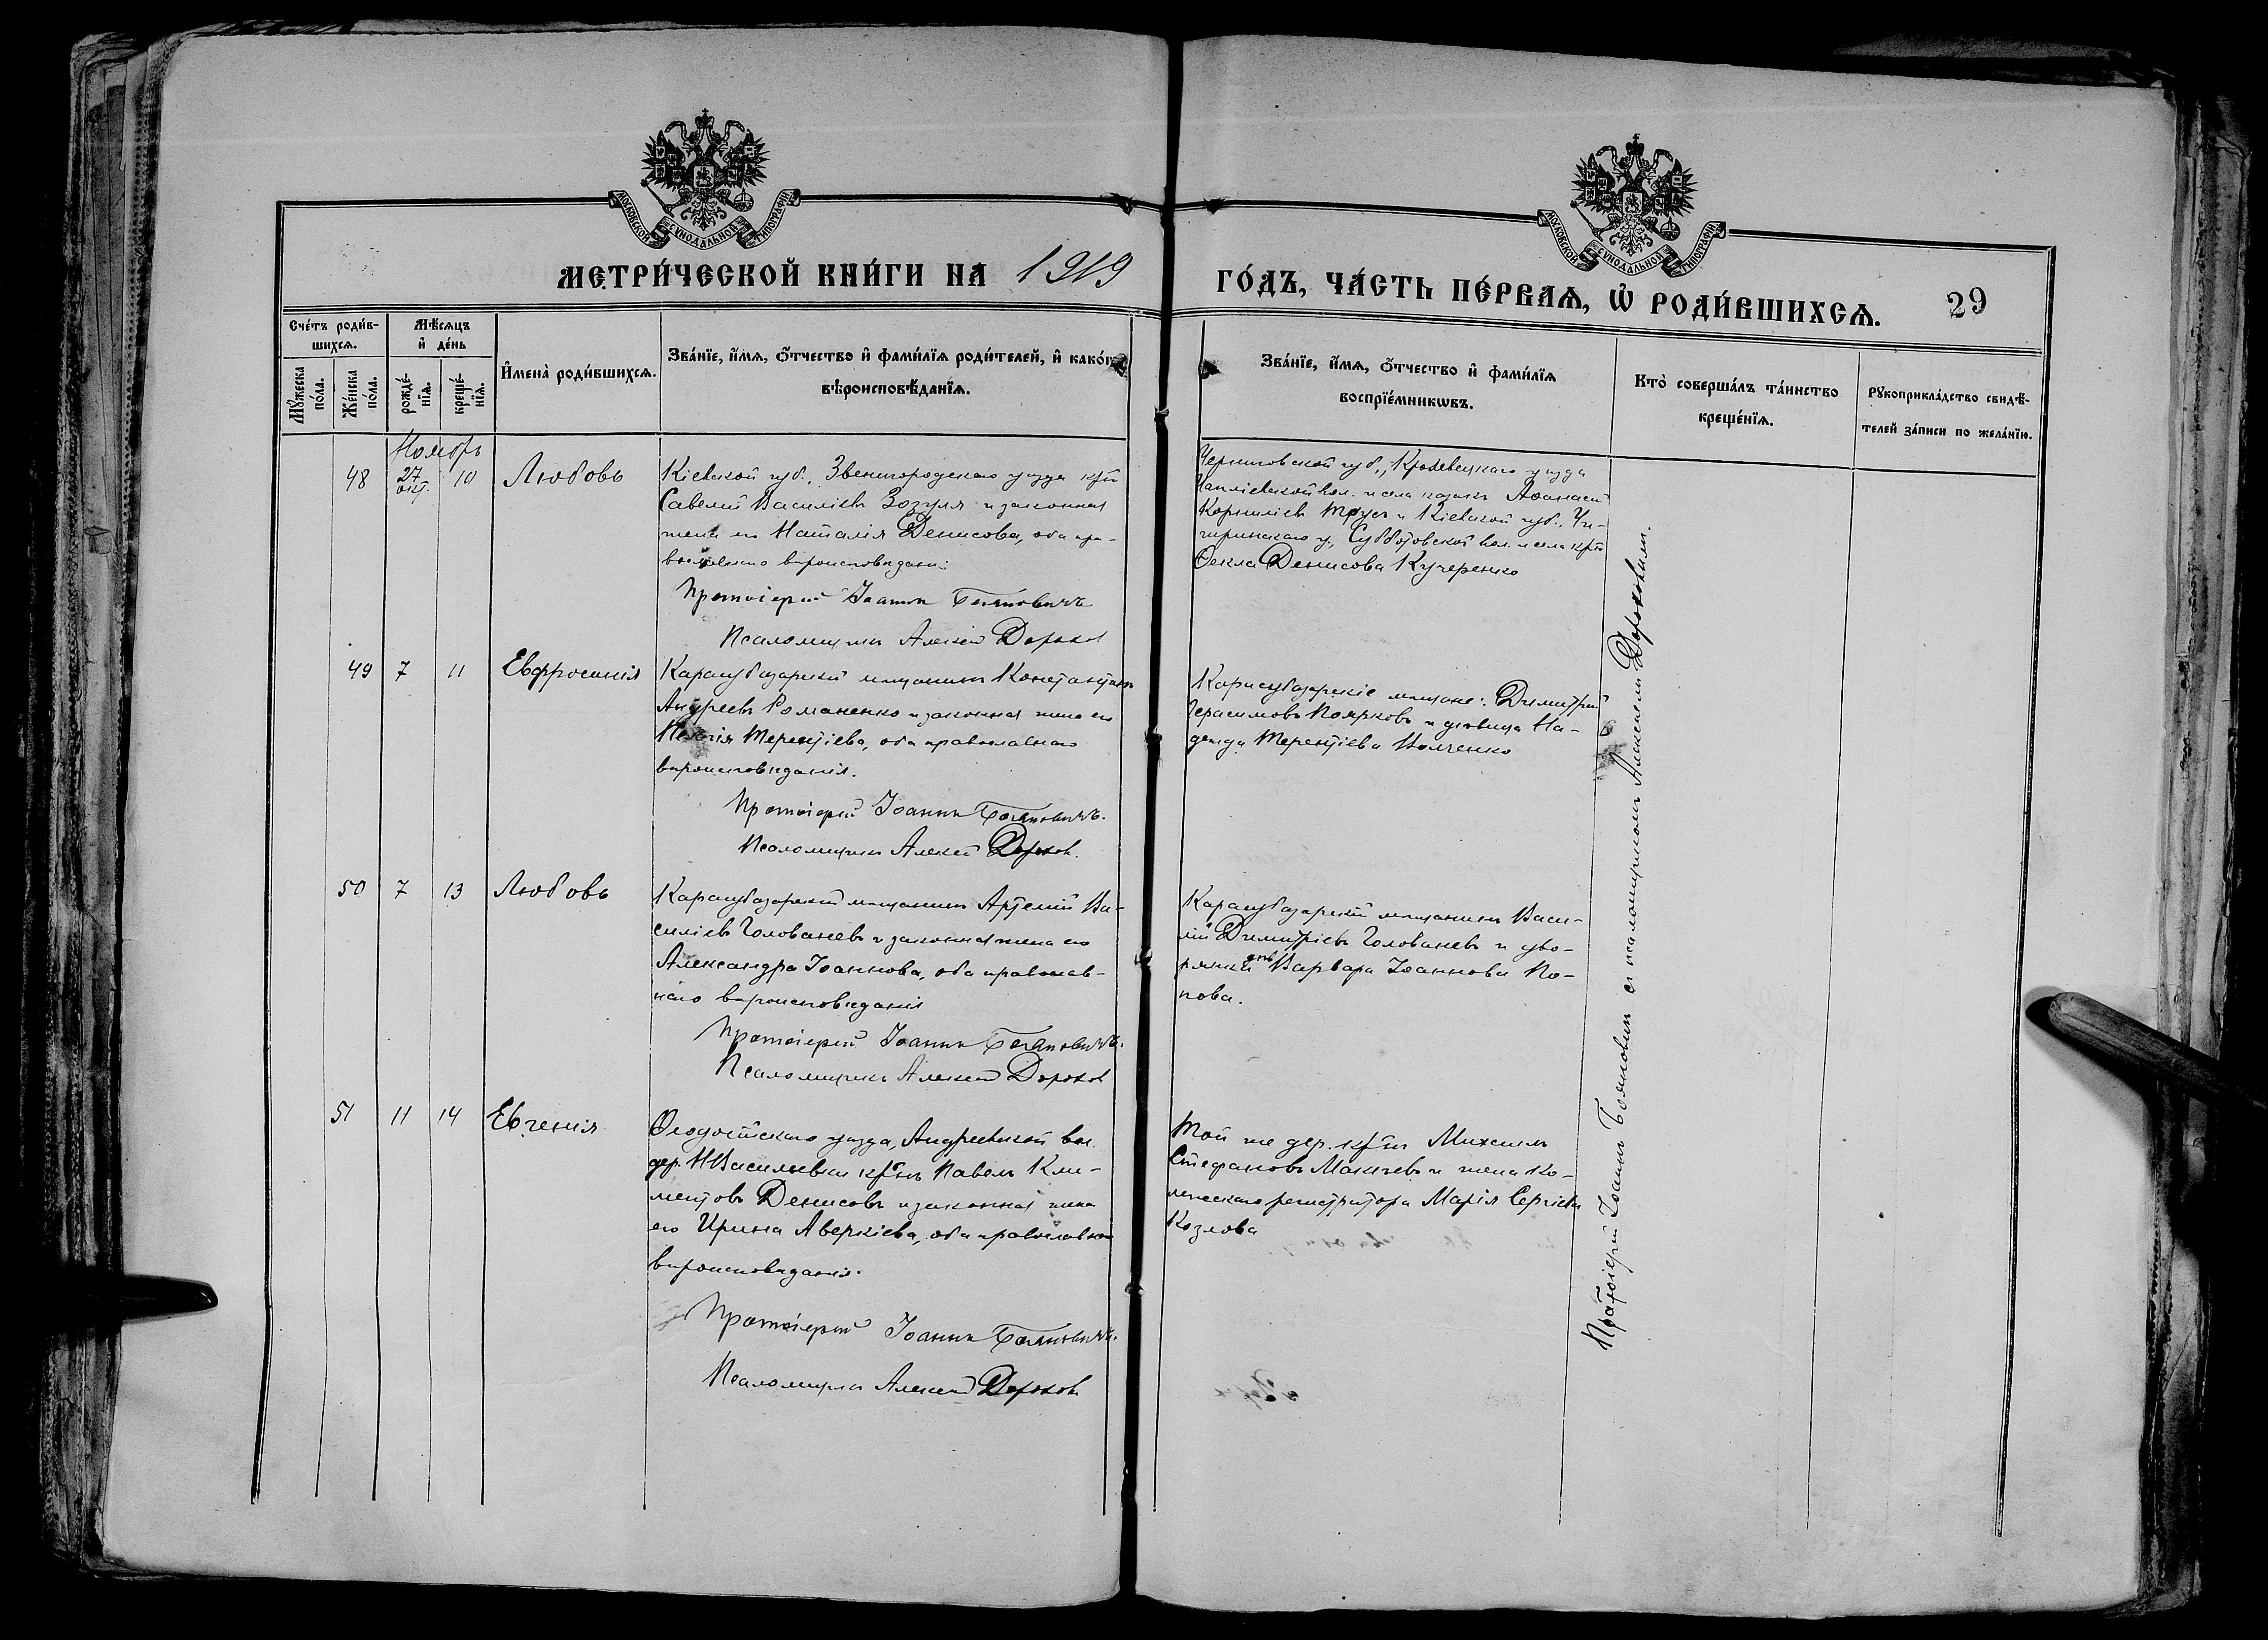 МОСКОВСКОЙ СѴНОДАЛЬНОЙ ТИПОГРАФІИ
МОСКОВСКОЙ СѴНОДАЛЬНОЙ ТИПОГРАФІИ
МЕТРИ́ЧЕСКОЙ КНИ́ГИ НА 1919
ГО́ДЪ, ЧА́СТЬ ПЕ́РВАѦ, Ѡ РОДИ́ВШИХСѦ.
29
Сче́тъ роди́в-
шихсѧ.
Мꙋ́жеска по́ла.
Же́нска по́ла.
Мѣ́сѧцъ
и де́нь
рожде́-
нїѧ.
креще́-
нїѧ.
Имена̀ роди́вшихсѧ.
Зва́нїе, и́мѧ, ѻ҆́тчество и фами́лїѧ роди́телей, и како́гѡ
вѣроисповѣ́данїѧ.
Зва́нїе, и́мѧ, ѻ҆́тчество и фами́лїѧ
воспрїе́мникѡвъ.
Кто̀ соверша́лъ та́инство
креще́нїѧ.
Рꙋкоприкла́дство свидѣ́-
телей за́писи по жела́нїю.
Ноябрь
48
27 окт.
10
Любовь
Кіевской губ., Звенигородскаго уѣзда кр-нъ
Савелій Василіевъ Зозуля и законная
жена его Наталія Денисова, оба пра-
вославнаго вѣроисповѣданія
Протоіерей Іоаннъ Бояновичъ
Псаломщикъ Алексій Дороховъ
Черниговской губ., Кролевецкаго уѣзда
вол. и села казакъ Аѳанасій
Корниліевъ Трусъ и Кіевской губ., Чи-
гиринскаго у., Субботовской вол. и села кр-ка
Ѳекла Денисова Кучеренко
49
7
11
Евфросинія
Карасубазарскій мѣщанинъ Константинъ
Андреевъ Романенко и законная жена его
Терентіева, оба православнаго
вѣроисповѣданія.
Протоіерей Іоаннъ Бояновичъ.
Псаломщикъ Алексій Дороховъ.
Карасубазарскіе мѣщане: Димитрій
Герасимовъ Поярковъ и дѣвица На-
дежда Терентіева Волченко
50
7
13
Любовь
Карасубазарскій мѣщанинъ Артемій Ва-
силіевъ Голованевъ и законная жена его
Александра Іоаннова, оба православ-
наго вѣроисповѣданія
Протоіерей Іоаннъ Бояновичъ.
Псаломщикъ Алексій Дороховъ
Карасубазарскій мѣщанинъ Васи-
лій Димитріевъ Голованевъ и дво-
рянка Варвара Іоаннова По-
пова.
51
11
14
Евгенія
Ѳеодосійскаго уѣзда, Андреевской вол.
дер. Н Васильевки кр-нъ Павелъ Кли-
ментовъ Денисовъ и законная жена
его Ирина Аверкіева, оба православнаго
вѣроисповѣданія.
Протоіерей Іоаннъ Бояновичъ.
Псаломщикъ Алексій Дороховъ
Той же дер. кр-нъ Михаилъ
Стефановъ и жена ко-
лежскаго регистратора Марія Сергіева
Козлова
Протоіерей Іоаннъ Бояновичъ съ псаломщикомъ Алексіемъ Дороховымъ.